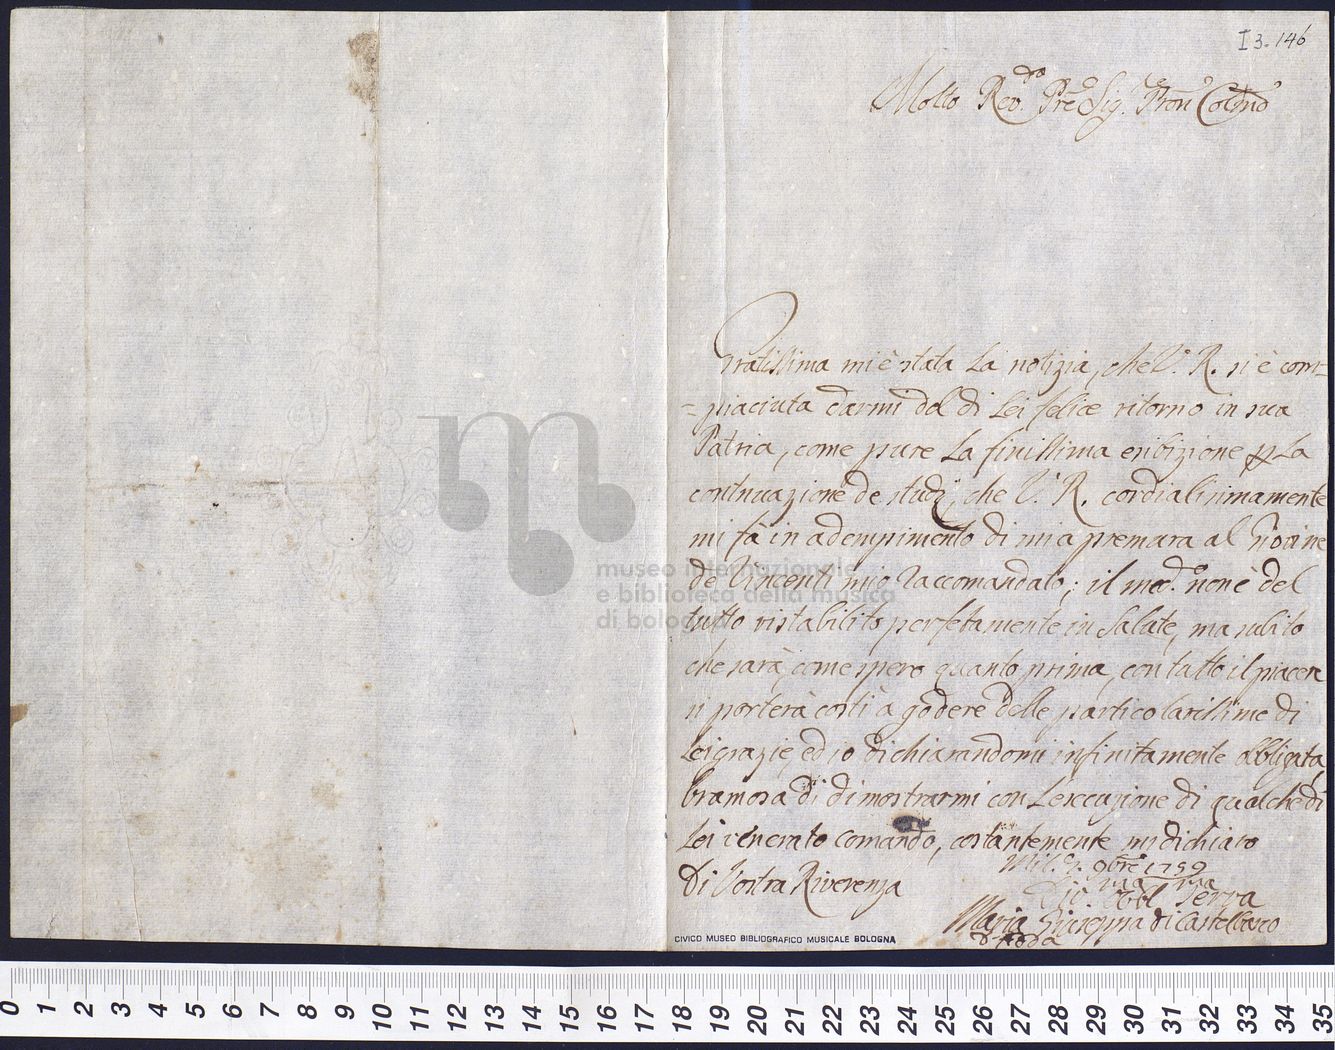 I 3.146
Molto Rev.do Pre Sig. Pron Colmo
Gratissima mi è stata la notizia, che V. R. si è com=
=piaciuta darmi del di Lei felice ritorno in sua
Patria, come pure la finissima esibizione p la
continuazione de studj, che V. R. cordialisimamente
mi fà in adempimento di mia premura al Giovine
de Vincenti mio raccomandato; il med.o non è del
tutto ristabilito perfetamente in salute, ma subito
che sarà, come spero quanto prima, con tutto il piacere
si porterà costì à godere delle particolarissime di
Lei grazie, ed io dichiarandomi infinitamente obbligata,
bramosa di dimostrarmi con l'esecuzione di qualche di
Lei venerato comando, costantemente mi dichiaro
Di Vostra Riverenza
Mil.o 7. 9bre 1759
Div.ma Obb.ma Serva
Maria Giuseppa di Castelbarco
d'Adda
museo internazionale
e biblioteca della musica
di bologna
CIVICO MUSEO BIBLIOGRAFICO MUSICALE BOLOGNA
0 1 2 3 4 5 6 7 8 9 10 11 12 13 14 15 16 17 18 19 20 21 22 23 24 25 26 27 28 29 30 31 32 33 34 35